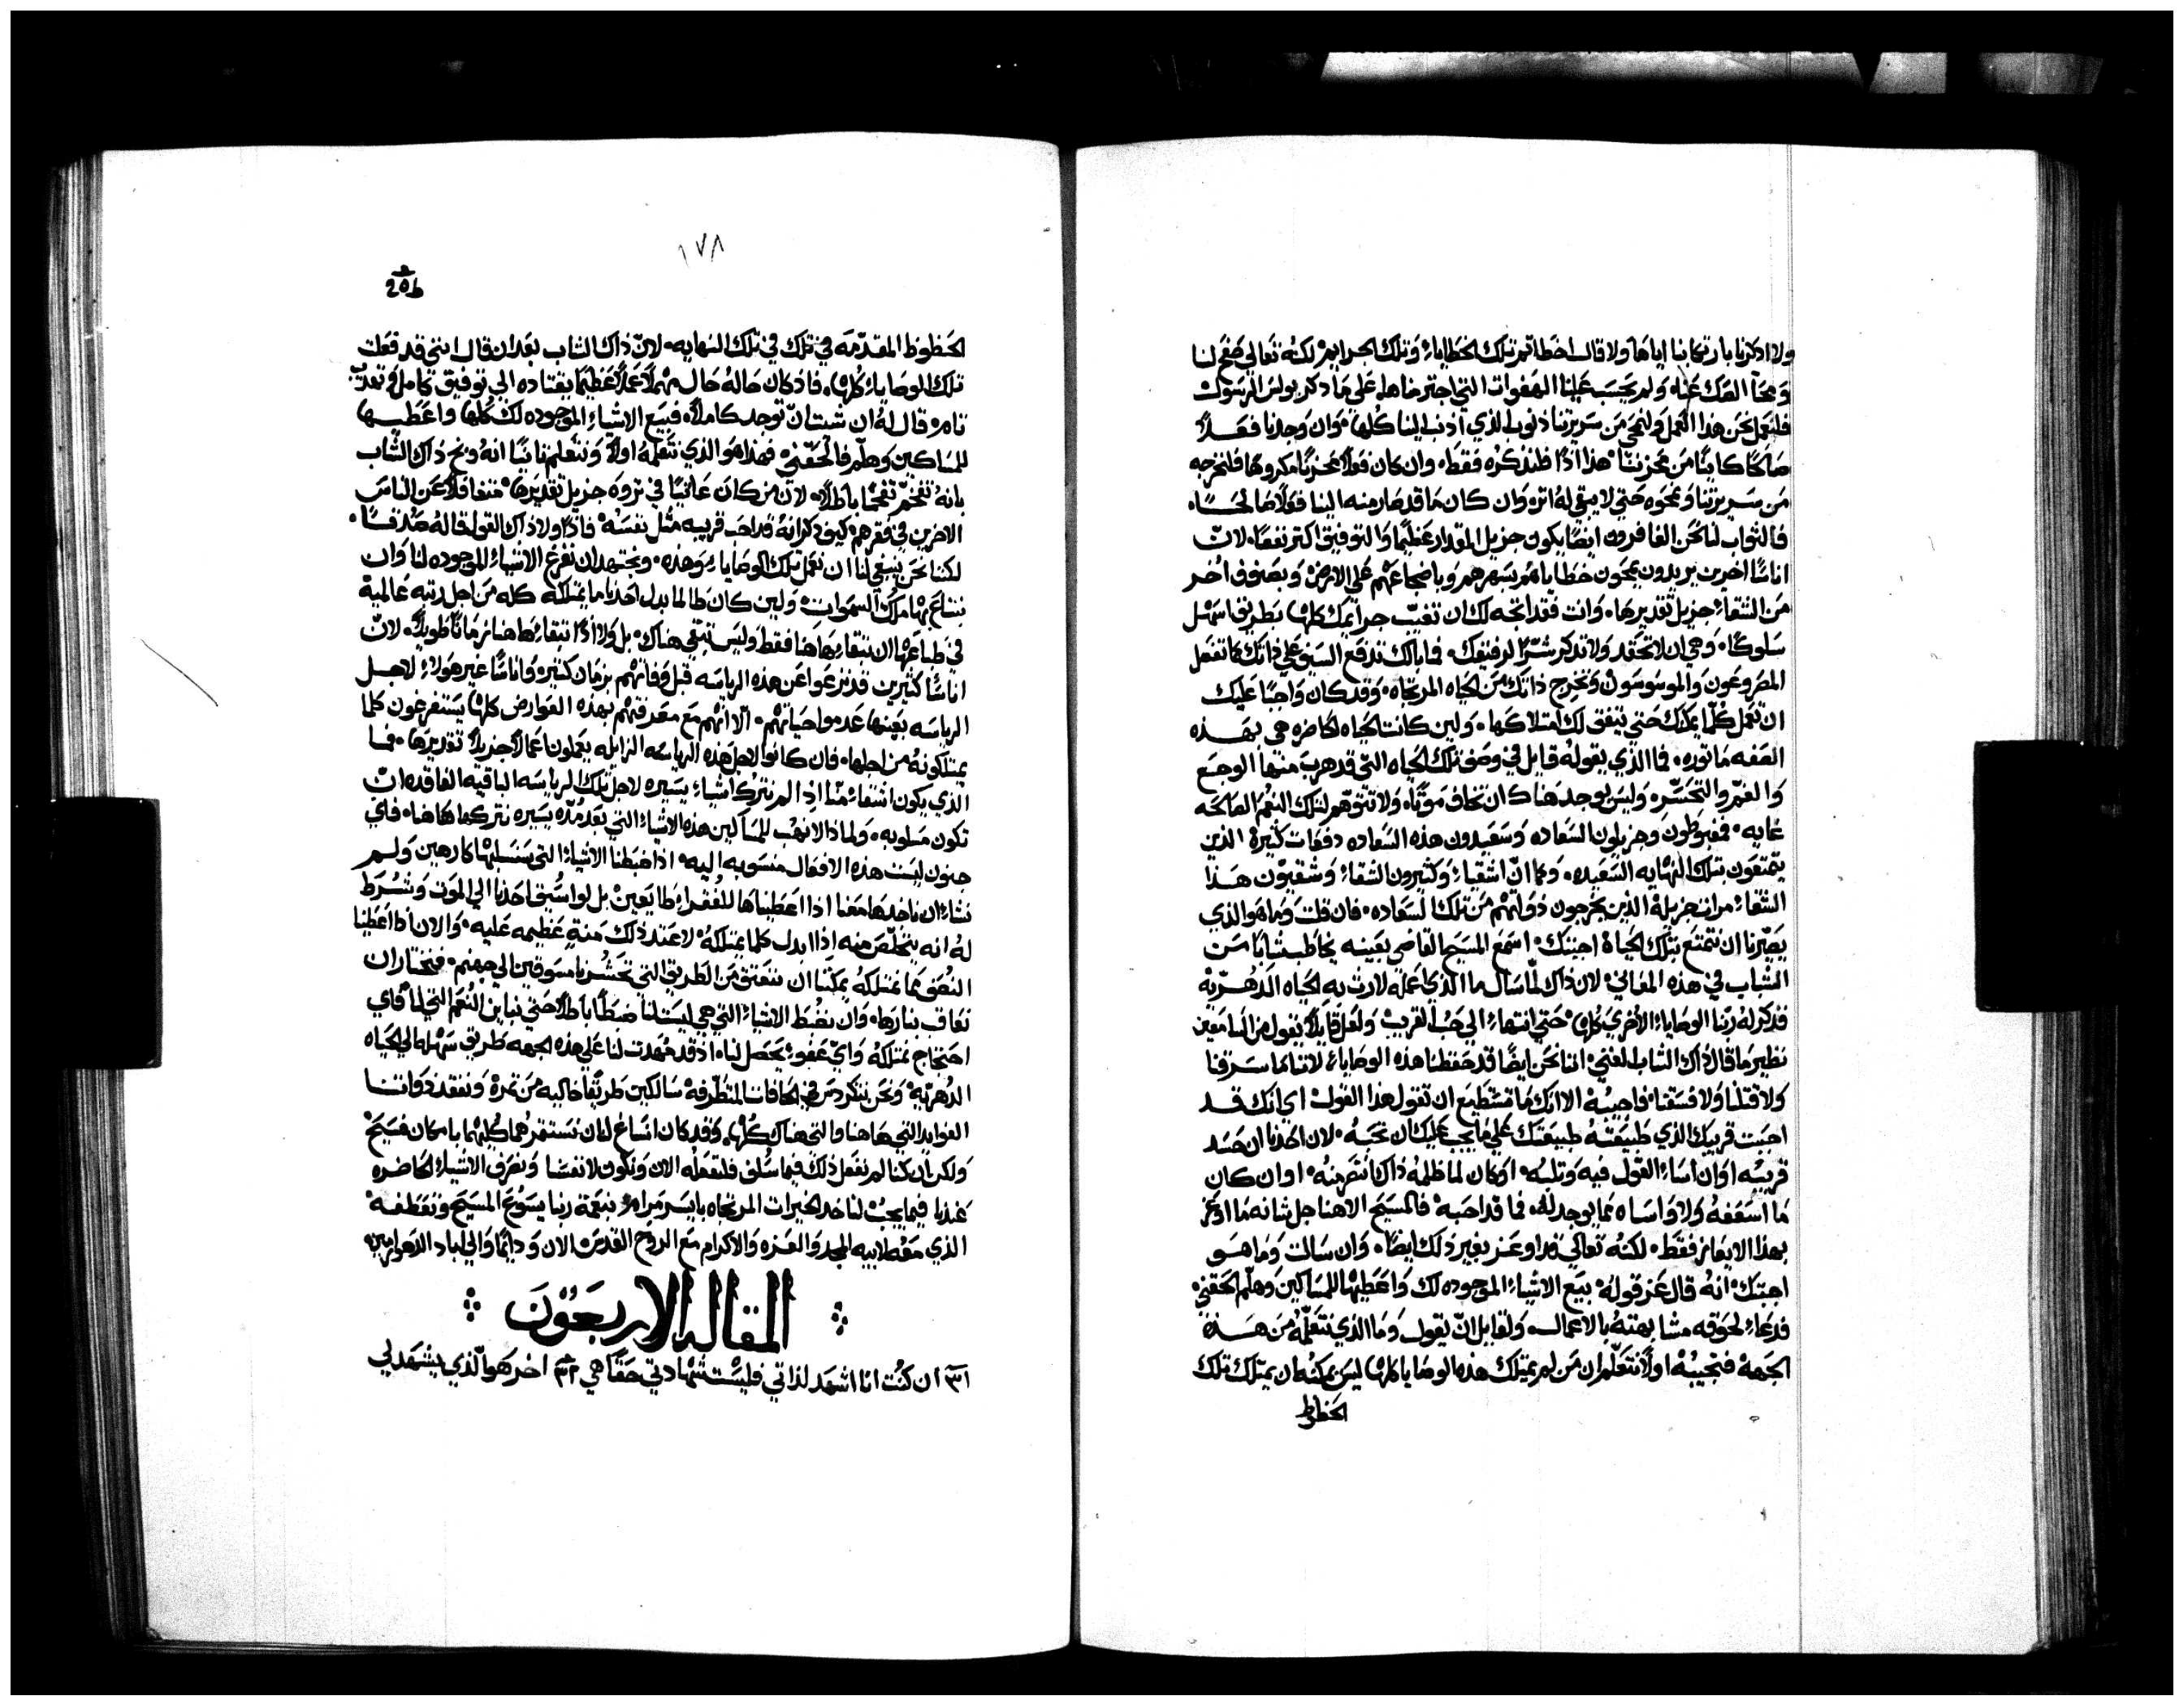 ولا اذكرنا بارتكابنا اياها ولا قال اخطاتم تلك الخطاياء وتلك الجرايم لكنه تعالي صفح لنا
ومحا الصك عنا ولم يحسب علينا الهفوات التي اجترمناها علي ما ذكر بولس الرسول
فلنعمل نحن هذا العمل ولنمحي من سريرتنا ذنوب الذي اذنب الينا كلها وان وجدنا فعلاً
صالحاً كاينًا من محزننا هذا اذًا فلنذكره فقط وان كان فعلاً محزنًا مكروهًا فلنخرجه
من سريرتنا ونمحوه حتي لا يبقي له اثر وان كان ما قد صار منه الينا فعلاً صالحًا
فالثواب لنا نحن الغافرون ايضًا يكون جزيل المقدار عظيمًا والتوفيق اكثر نفعًا لان
اناسًا اخرين يريدون يمحون خطاياهم بسهرهم وباضجاعهم علي الارض وبصنوف اخر
من الشقاء جزيل تقديرها وانت فقد اتجه لك ان تغيب جرايمك كلها بطريق اسهل
سلوكًا وهي ان لا تحقد ولا تذكر شرًا لرفيقك فما بالك تدفع السيف علي ذاتك كما تفعل
المصروعون والموسوسون وتخرج ذاتك من الحياه المرتجاه وقد كان واجبًا عليك
ان تعمل كلما يمكنك حتي يتفق لك امتلاكها ولين كانت الحياه الحاضره هي بهذه
الصفه ماثوره فما الذي يقوله قايل في وصف تلك الحياه التي قد هرب منها الوجع
والغم والتحسر وليس يوجد هناك ان تخاف موتًا ولا تتوهم لتلك النعم الصالحه
غايه فمغبوطون وجزيلون السعاده وسعيدون هذه السعاده دفعات كثيرة الذين
يتمتعون بتلك النهايه السعيده وكما ان اشقياء وكثيرون الشقاء وشقيون هذا
الشقاء مرات جزيلة الذين يخرجون ذواتهم من تلك السعاده فان قلت وما هو الذي
يصيرنا ان نتمتع بتلك الحياة اجبتك اسمع المسيح القاضي بعينه يخاطب شابًا من
الشباب في هذه المعاني لان ذاك لما سال ما الذي اعمله لارث به الحياه الدهريه
فذكر له ربنا الوصاياء الاخري كلها حتي انتهاء الي حب القريب ولعل قايلاً يقول من السامعين
نظير ما قال ذاك الشاب الغني اننا نحن ايضًا قد حفظنا هذه الوصاياء لاننا ما سرقنا
ولا قتلنا ولا فسقنا فاجيبه الا انك ما تستطيع ان تقول هذا القول اي انك قد
احببت قريبك الذي طبيعته طبيعتك علي ما يجب عليك ان تحبه لان احدنا ان حسد
قريبه او ان اساء القول فيه وثلبه او كان لما ظلمه ذاك ما نصر منه او ان كان
ما اسعفه ولا واساه مما يوجد له فما قد احبه فالمسيح الاهنا جل شانه ما اوعز
بهذا الايعاز فقط لكنه تعالي قد اوعز بغير ذلك ايضًا وان سالت وما هو
اجبتك انه قال عز قوله بيع الاشياء الموجوده لك واعطيها للمساكين وهلم الحقني
فدعاء لحوقه مشابهته بالاعمال ولقايل ان يقول وما الذي نتعلمه من هذه
الجهة فنجيبه اولاً نتعلم ان من لم يمتلك هذه الوصايا كلها ليس يمكنه ان يمتلك تلك
الحظوظ
١٧٨
الحظوظ المقدمه في تلك في تلك النهايه لان ذاك الشاب بعد ان قال انني قد فعلت
تلك الوصاياء كلها فاذ كان حاله حال مهملاً عملاً عظيمًا يقتاده الي توفيق كامل
تام قال له ان شيت ان توجد كاملاً فبيع الاشياء الموجوده لك كلها واعطيها
للمساكين وهلم فالحقني فهذا هو الذي نتعلمه اولاً ونتعلم ثانيًا انه وبخ ذاك الشاب
بانه تفخم تفخمًا باطلاً لان من كان عايشًا في ثروه جزيل تقديرها متغافلاً عن الناس
الاخرين في فقرهم كيف ذكر انه قد احب قريبه مثل نفسه فاذًا ولا ذاك القول قاله صدقًا
لكننا نحن ينبغي لنا ان نعمل تلك الوصاياء وهذه ونجتهد ان نفرغ الاشياء الموجوده لنا وان
نبتاع بها ملك السموات ولين كان طالما بدل احدنا ما يمتلكه كله من اجل رتبه عالمية
في طباعها ان بقاءها هاهنا فقط وليس تبقي هناك بل ولا اذًا تبقاءها هنا زمانًا طويلاً لان
اناسًا كثيرين قد نزعوا عن هذه الرياسه قبل وفاتهم بزمان كثير واناسًا غير هولاء لاجل
الرياسه بعينها عدموا حياتهم الا انهم مع معرفتهم بهذه العوارض كلها يستفرغون كلما
يمتلكونه من اجلها فان كانوا لاجل هذه الرياسه الزايله يعملون اعمالاً جزيلاً تقديرها فما
الذي يكون اشقاء منا اذا لم نترك اشياء يسيره لاجل تلك الرياسه الباقيه الفاقده ان
تكون مسلوبه ولماذا لا نهب للمساكين هذه الاشياء التي بعد مده يسيره نتركها هاهنا فاي
جنون ليست هذه الافعال منسوبه اليه اذا ضبطنا الاشياء التي سنسلبها كارهين ولم
نشاء ان ناخذها معنا اذا اعطيناها للفقراء طايعين بل لو اسيق احدنا الي الموت وشرط
له انه يتخلص منه اذا بدل كلما يمتلكه لاعتد ذلك منةٍ عظيمه عليه والان اذا اعطينا
النصف مما نمتلكه يمكننا ان ننعتق من الطريق التي تحشرنا مسوقين الي جهنم فنختار ان
نعاقب بنارها وان نضبط الاشياء التي هي ليست لنا ضبطًا باطلاً حتي نباين النعم التي لنا فاي
احتجاج نمتلكه واي عفوٍ يحصل لنا اذ قد مُهدت لنا علي هذه الجهه طريق سهله الي الحياه
الدهريه ونحن نتكردس في الحافات المتطرفه سالكين طريقًا خاليه من ثمرة ونفقد ذواتنا
الفوايد التي هاهنا والتي هناك كلها وقد كان انساغ لنا ان نستثمرهما كليهما بامكان فسيح
ولكن ان كنا لم نفعل ذلك فيما سُلف فلنفعله الان ونكون لانفسنا ونصرف الاشياء الحاضره
عندنا فيما يجب لناخذ الخيرات المرتجاه بايسر مرام بنعمة ربنا يسوع المسيح وتعطفه
الذي معه لابيه المجد والعزه والاكرام مع الروح القدس الان ودايمًا والي اباد الدهور امين
المقاله الاربعون
ان كنت انا اشهد لذاتي فليست شهادتي حقًا هي اخر هو الذي يشهد لي